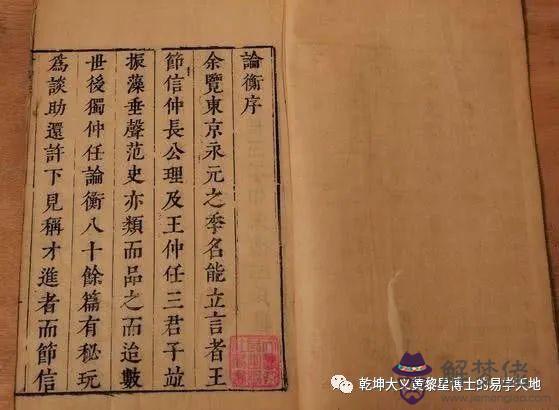 論衡序
余覽東京永元之季名能立言者王
節信仲長公理及王仲任三君子竝
振藻垂聲范史亦類而品之而迨數
世後獨仲任論衡八十餘篇有秘玩
為談助還許下見稱才進者而節信
乾坤大义黄黎星博士的易学天地
解梦佬
jiemenglao.com